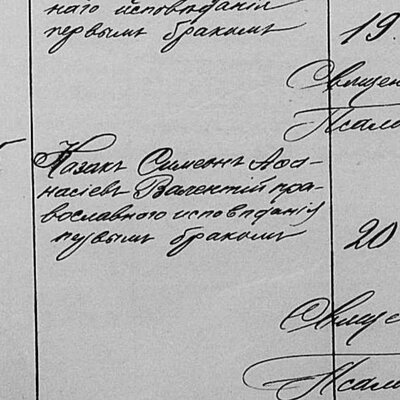 наго исповѣданія
первымъ бракомъ
19.
Священ
Псалм
Казакъ Симеонъ Аѳа-
насіевъ Валентій пра-
вославнаго исповѣданія
первымъ бракомъ
20
Священ
Псалм